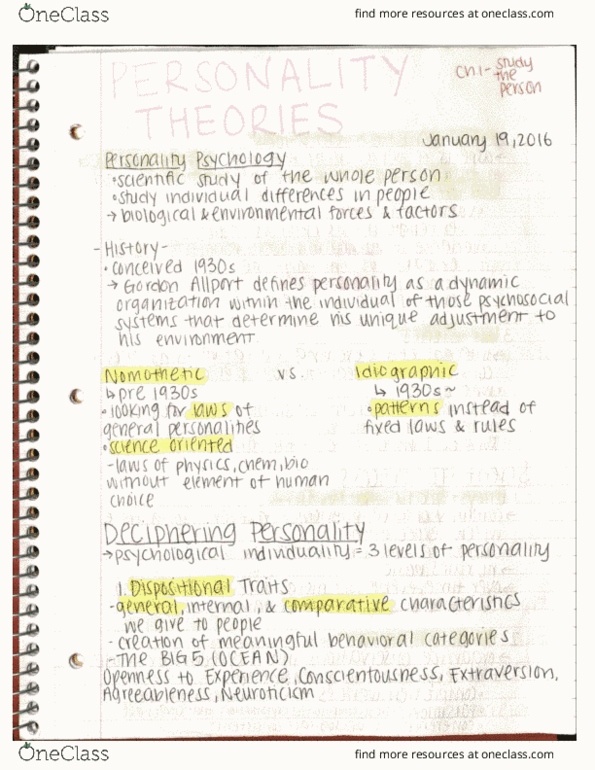 OneClass
find more resources at oneclass.com
PERSONALITY
THEORIES
Ch1- study
the
person
January 19, 2016
Personality Psychology
• scientific study of the whole person
• study individual differences in people
→ biological & environmental forces & factors
- History -
• conceived 1930s
→ Gordon Allport defines personality as a dynamic
organization within the individual of those psychosocial
systems that determine his unique adjustment to
his environment
Nomothetic vs. Idiographic
↳ pre 1930s
↳ 1930s~
• looking for laws of
general personalities
• patterns instead of
fixed laws & rules
• science oriented
- laws of physics, chem, bio
without element of human
choice
Deciphering Personality
→ psychological individuality = 3 levels of personality
1. Dispositional Traits
- general, internal, & comparative characteristics
we give to people
- creation of meaningful behavioral categories
- THE BIG 5 (OCEAN)
Openness to Experience, Conscientousness, Extraversion,
Agreeableness, Neuroticism
OneClass
find more resources at oneclass.com